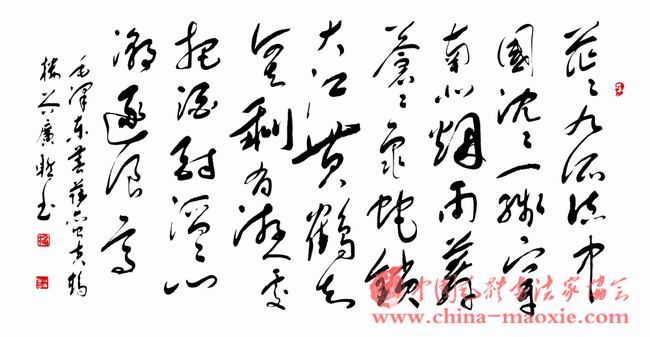 茫〻九派流中
國沈〻一线穿
南北烟雨莽
蒼〻龟蛇锁
大江黄鹤知
何去剩有游人处
把酒酹滔〻心
潮逐浪高
毛泽东菩萨蛮黄鹤
楼 廣 书
中国毛体书法家协会
www.china-maoxie.com